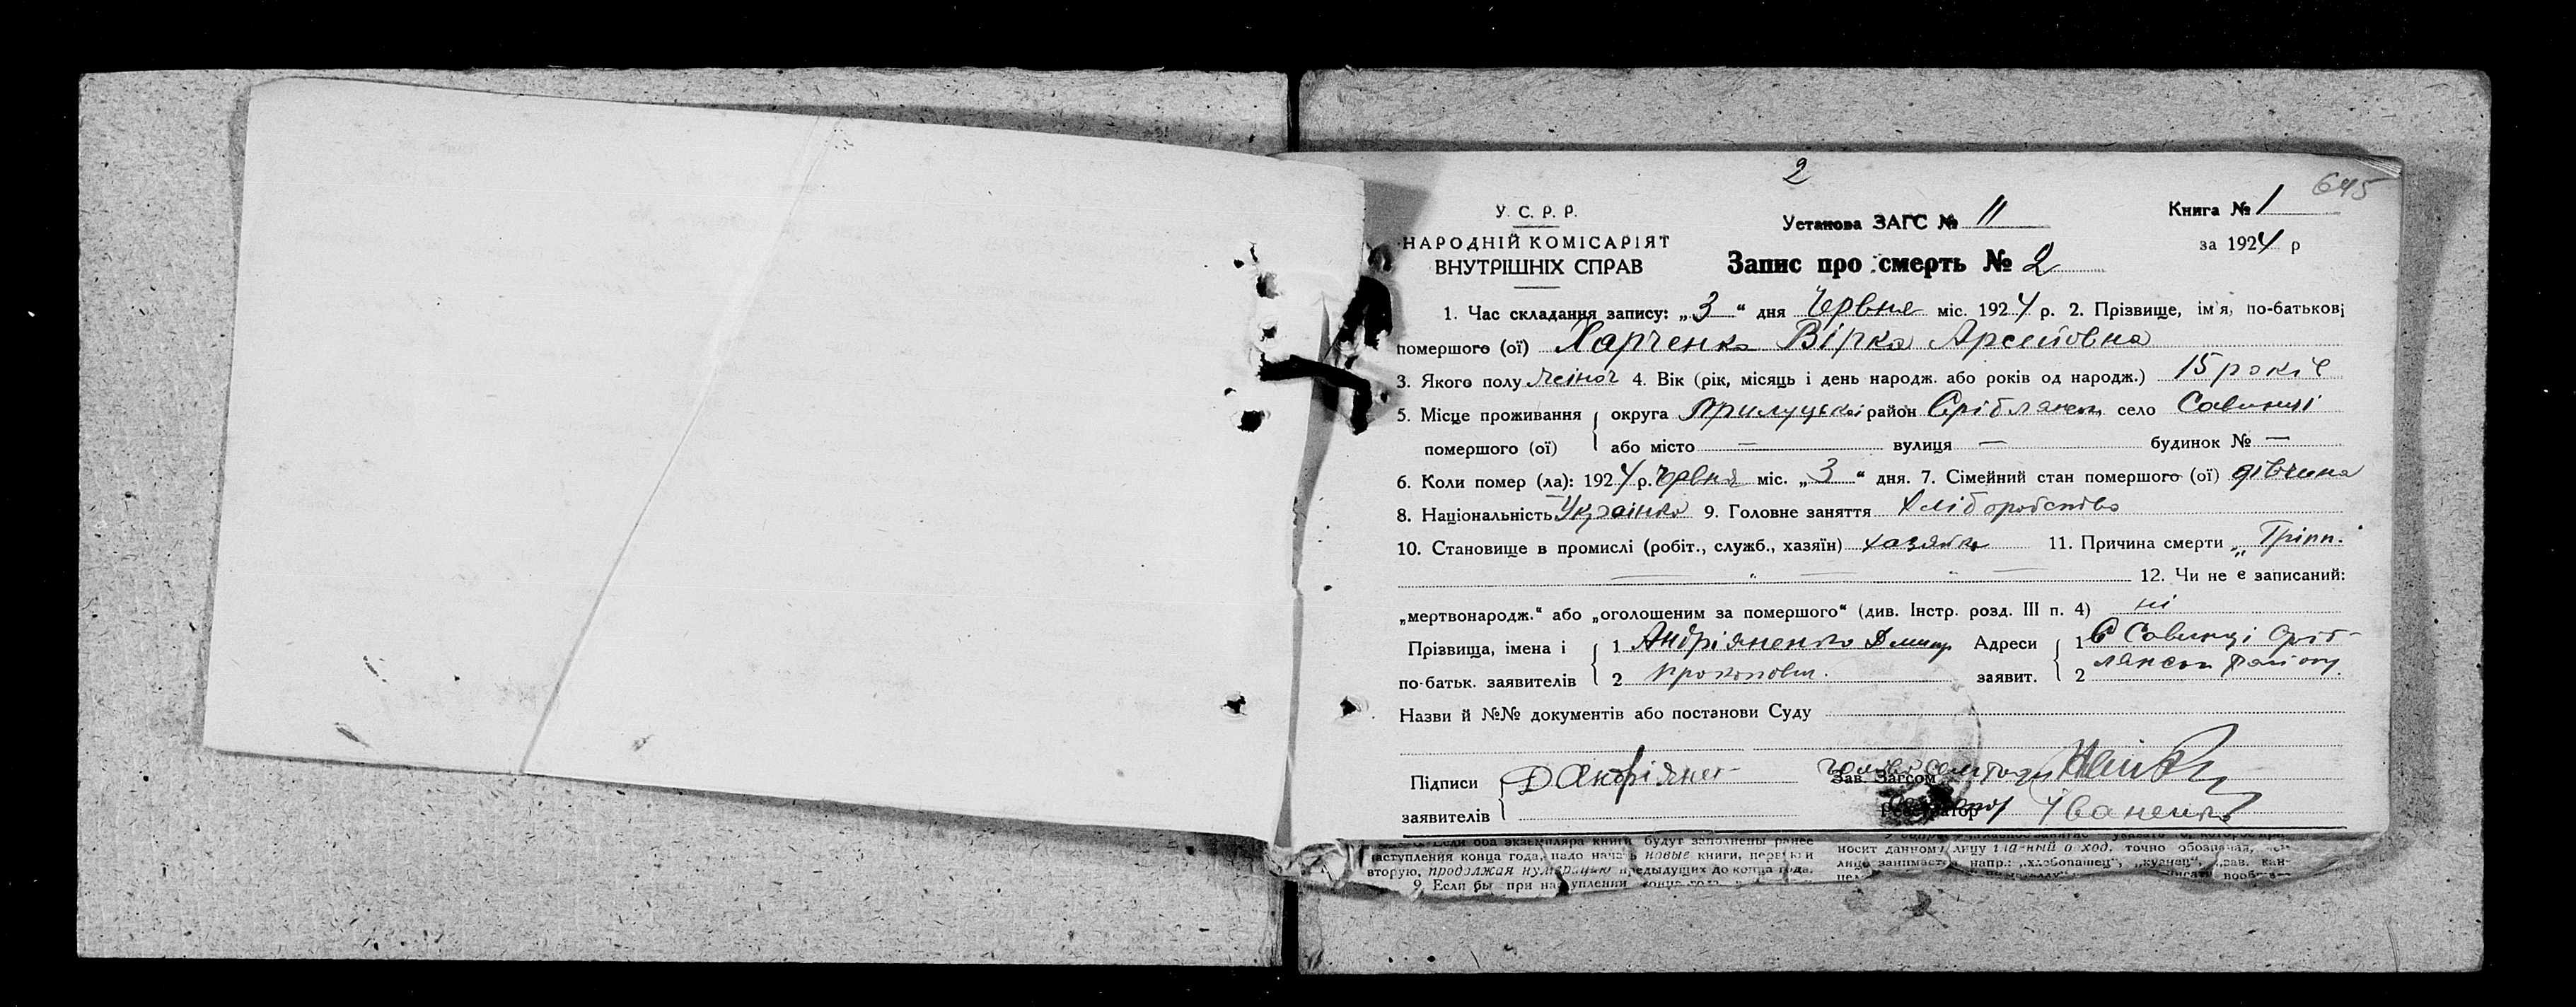 2
645
У. С. Р. Р.
НАРОДНІЙ КОМІСАРІЯТ
ВНУТРІШНІХ СПРАВ
Установа ЗАГС № 11
Книга № 1
за 1924 р
Запис про смерть № 2
1. Час складання запису: „3“ дня Червня міс. 1924 р. 2. Прізвище, ім'я, по-батькові
помершого (ої) Харченко Вірка Арсеновна
3. Якого полу жіноч 4. Вік (рік, місяць і день народж. або років од народж.) 15 років
5. Місце проживання округа Прилуцької район Сріблянськ село Савинці
помершого (ої) або місто — вулиця — будинок № —
6. Коли помер (ла): 1924 р. Червня міс. „3“ дня. 7. Сімейний стан помершого (ої) дівчина
8. Національність Українка 9. Головне заняття Хліборобство
10. Становище в промислі (робіт., служб., хазяїн) хазяйка 11. Причина смерти „Гріпп.
12. Чи не є записаний:
„мертвонародж.“ або „оголошеним за помершого“ (див. Інстр. розд. III п. 4) ні
Прізвища, імена і 1 Андріяненко Дмитр Адреси 1 С Савинці Сріб-
по-батьк. заявителів 2 Прокопови. заявит. 2 лянськ району.
Назви й №№ документів або постанови Суду
Підписи Д Андріянен Зав. Загсом
заявителів Реєстратор Іваненко
Если оба экземпляра книги будут заполнены ранее
наступления конца года, надо начать новые книги, первую и
вторую, продолжая нумерацию предыдущих до конца года.
9. Если бы при наступлении конца года
носит данному лицу главный доход, точно обозначая,
лицо занимается напр.: „хлебопашец“, „кузнец“, „зав. кан-